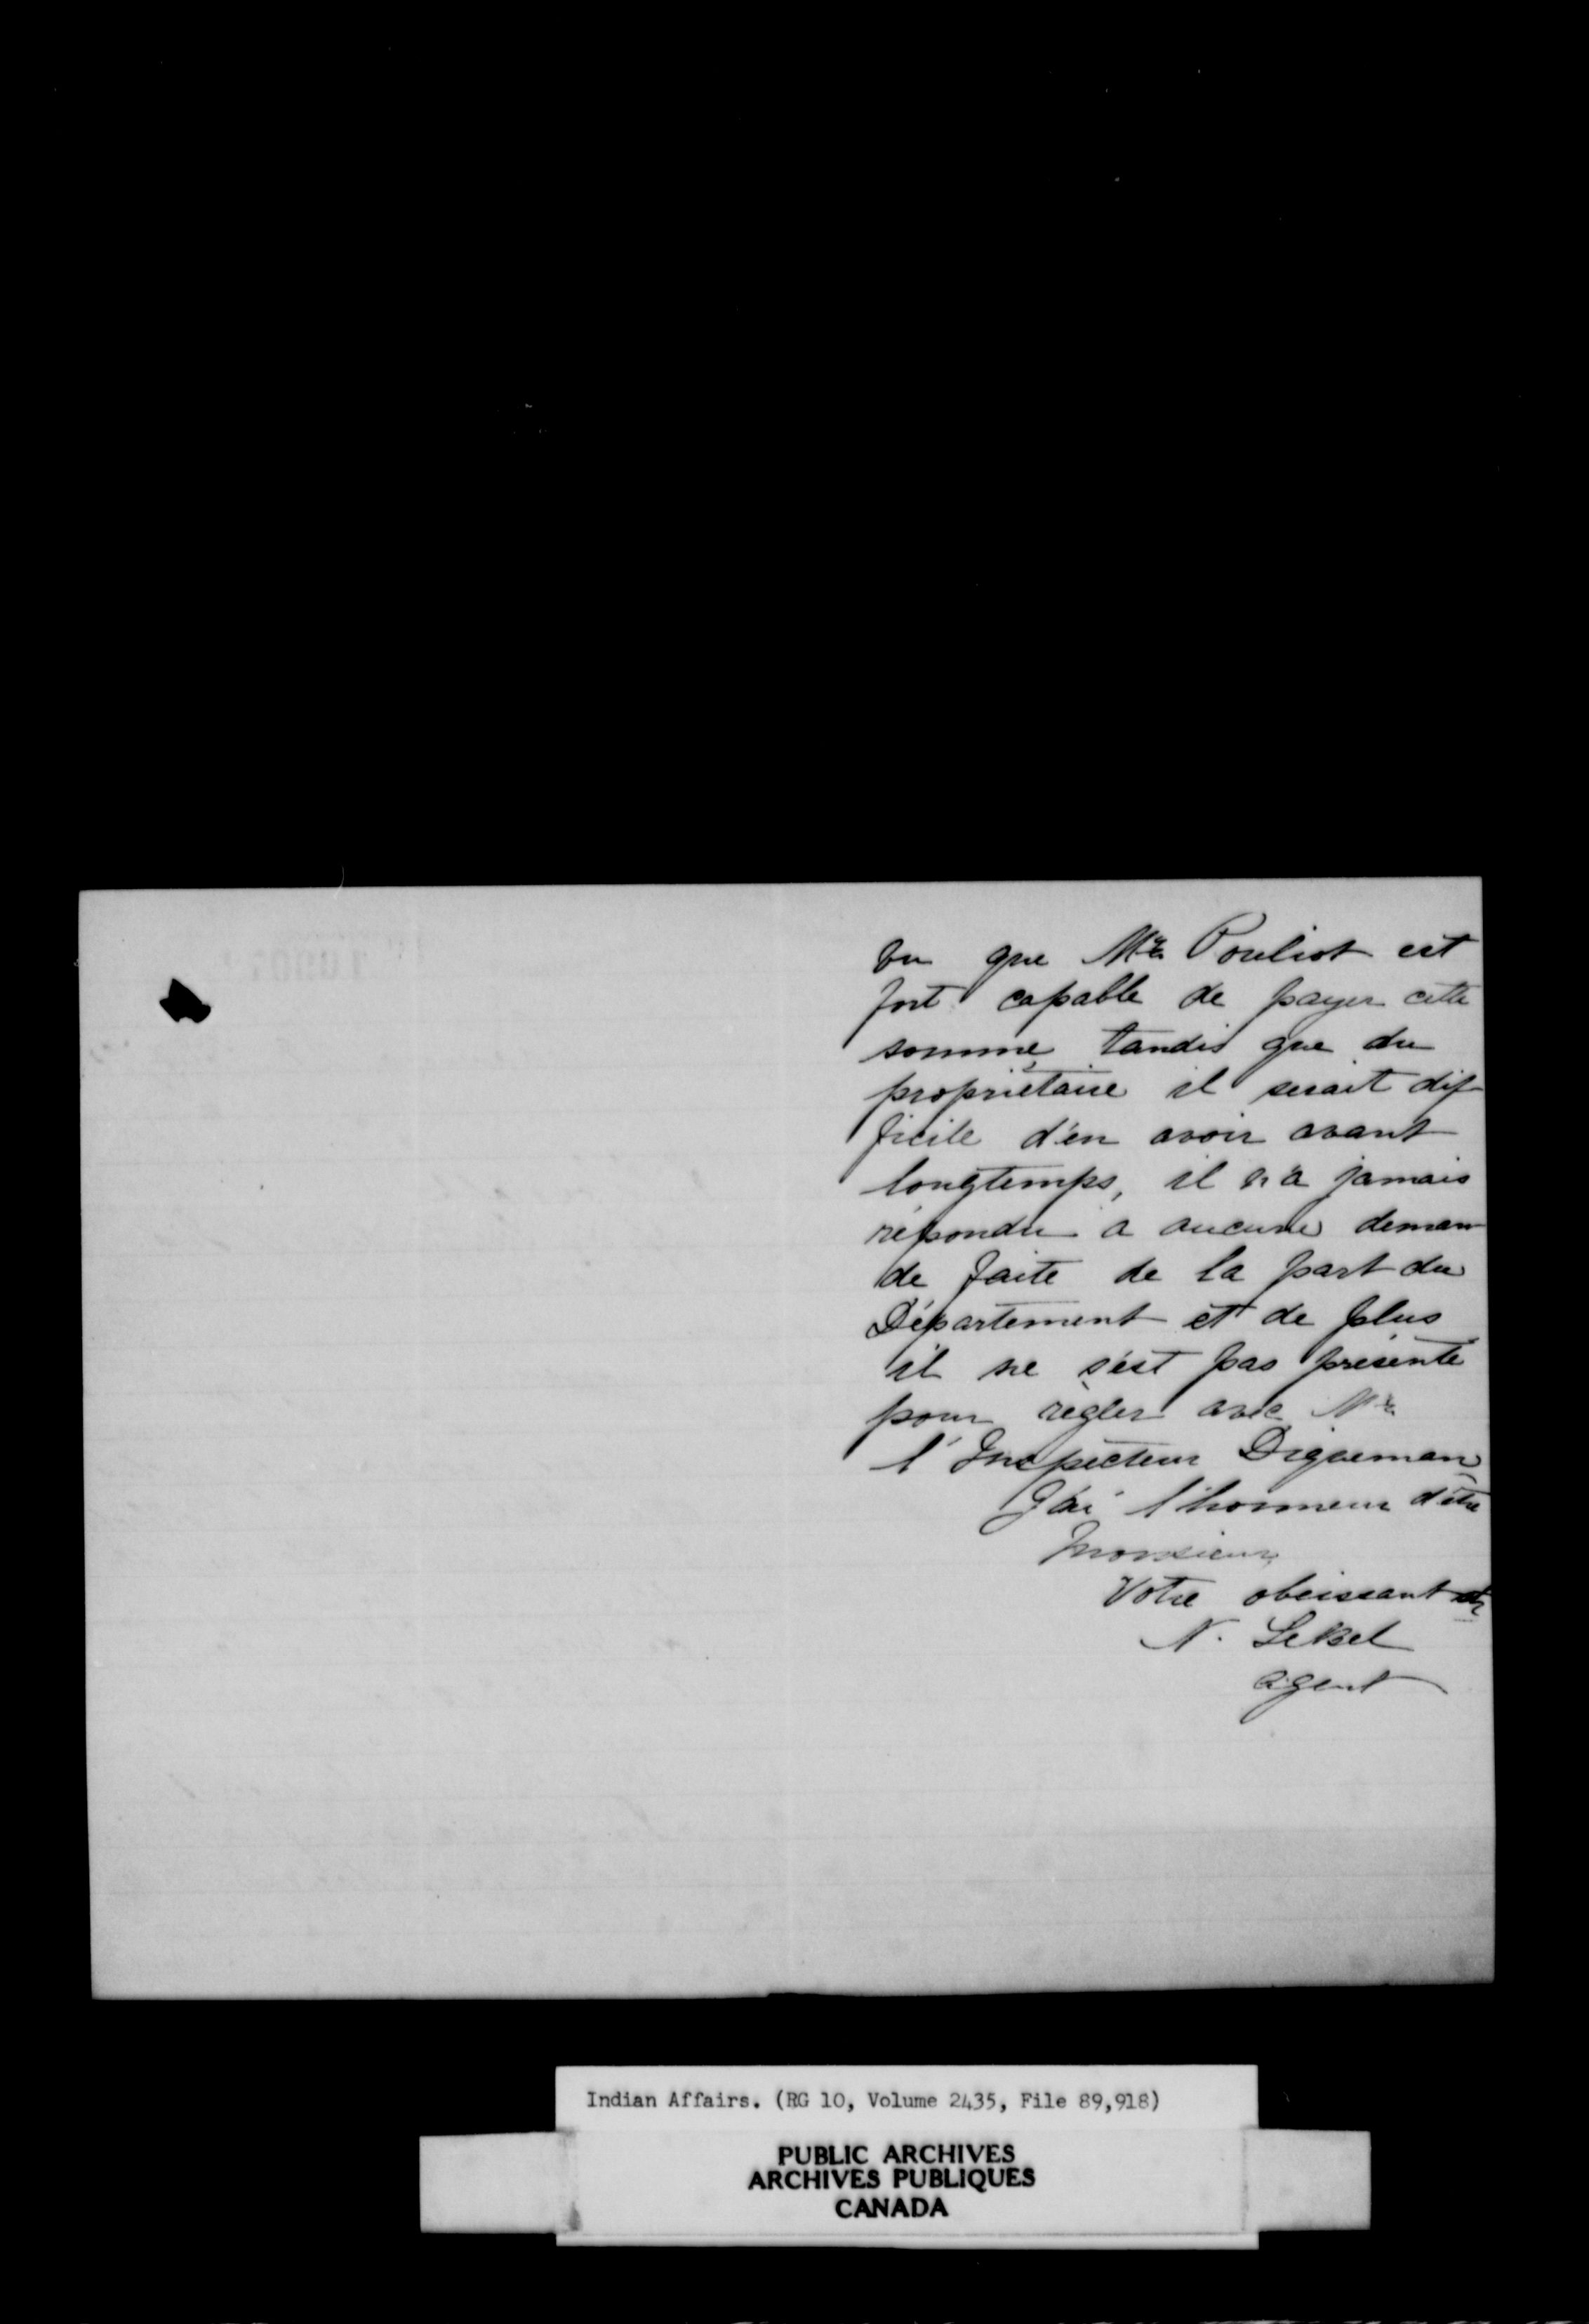 Vu que Mr Pouliot est
fort capable de payer cette
somme, tandis que du
propriétaire il serait dif
ficile d'en avoir avant
longtemps, il n'a jamais
répondu a aucune deman
de faite de la part du
Département et de plus
il ne s'est pas présenté
pour régler avec Mr
l'Inspecteur Digueman
J'ai l'honneur d'être
Monsieur
Votre obeissant
N. LeBel
agent
Indian Affairs. (RG 10, Volume 2435, File 89,918)
PUBLIC ARCHIVES
ARCHIVES PUBLIQUES
CANADA